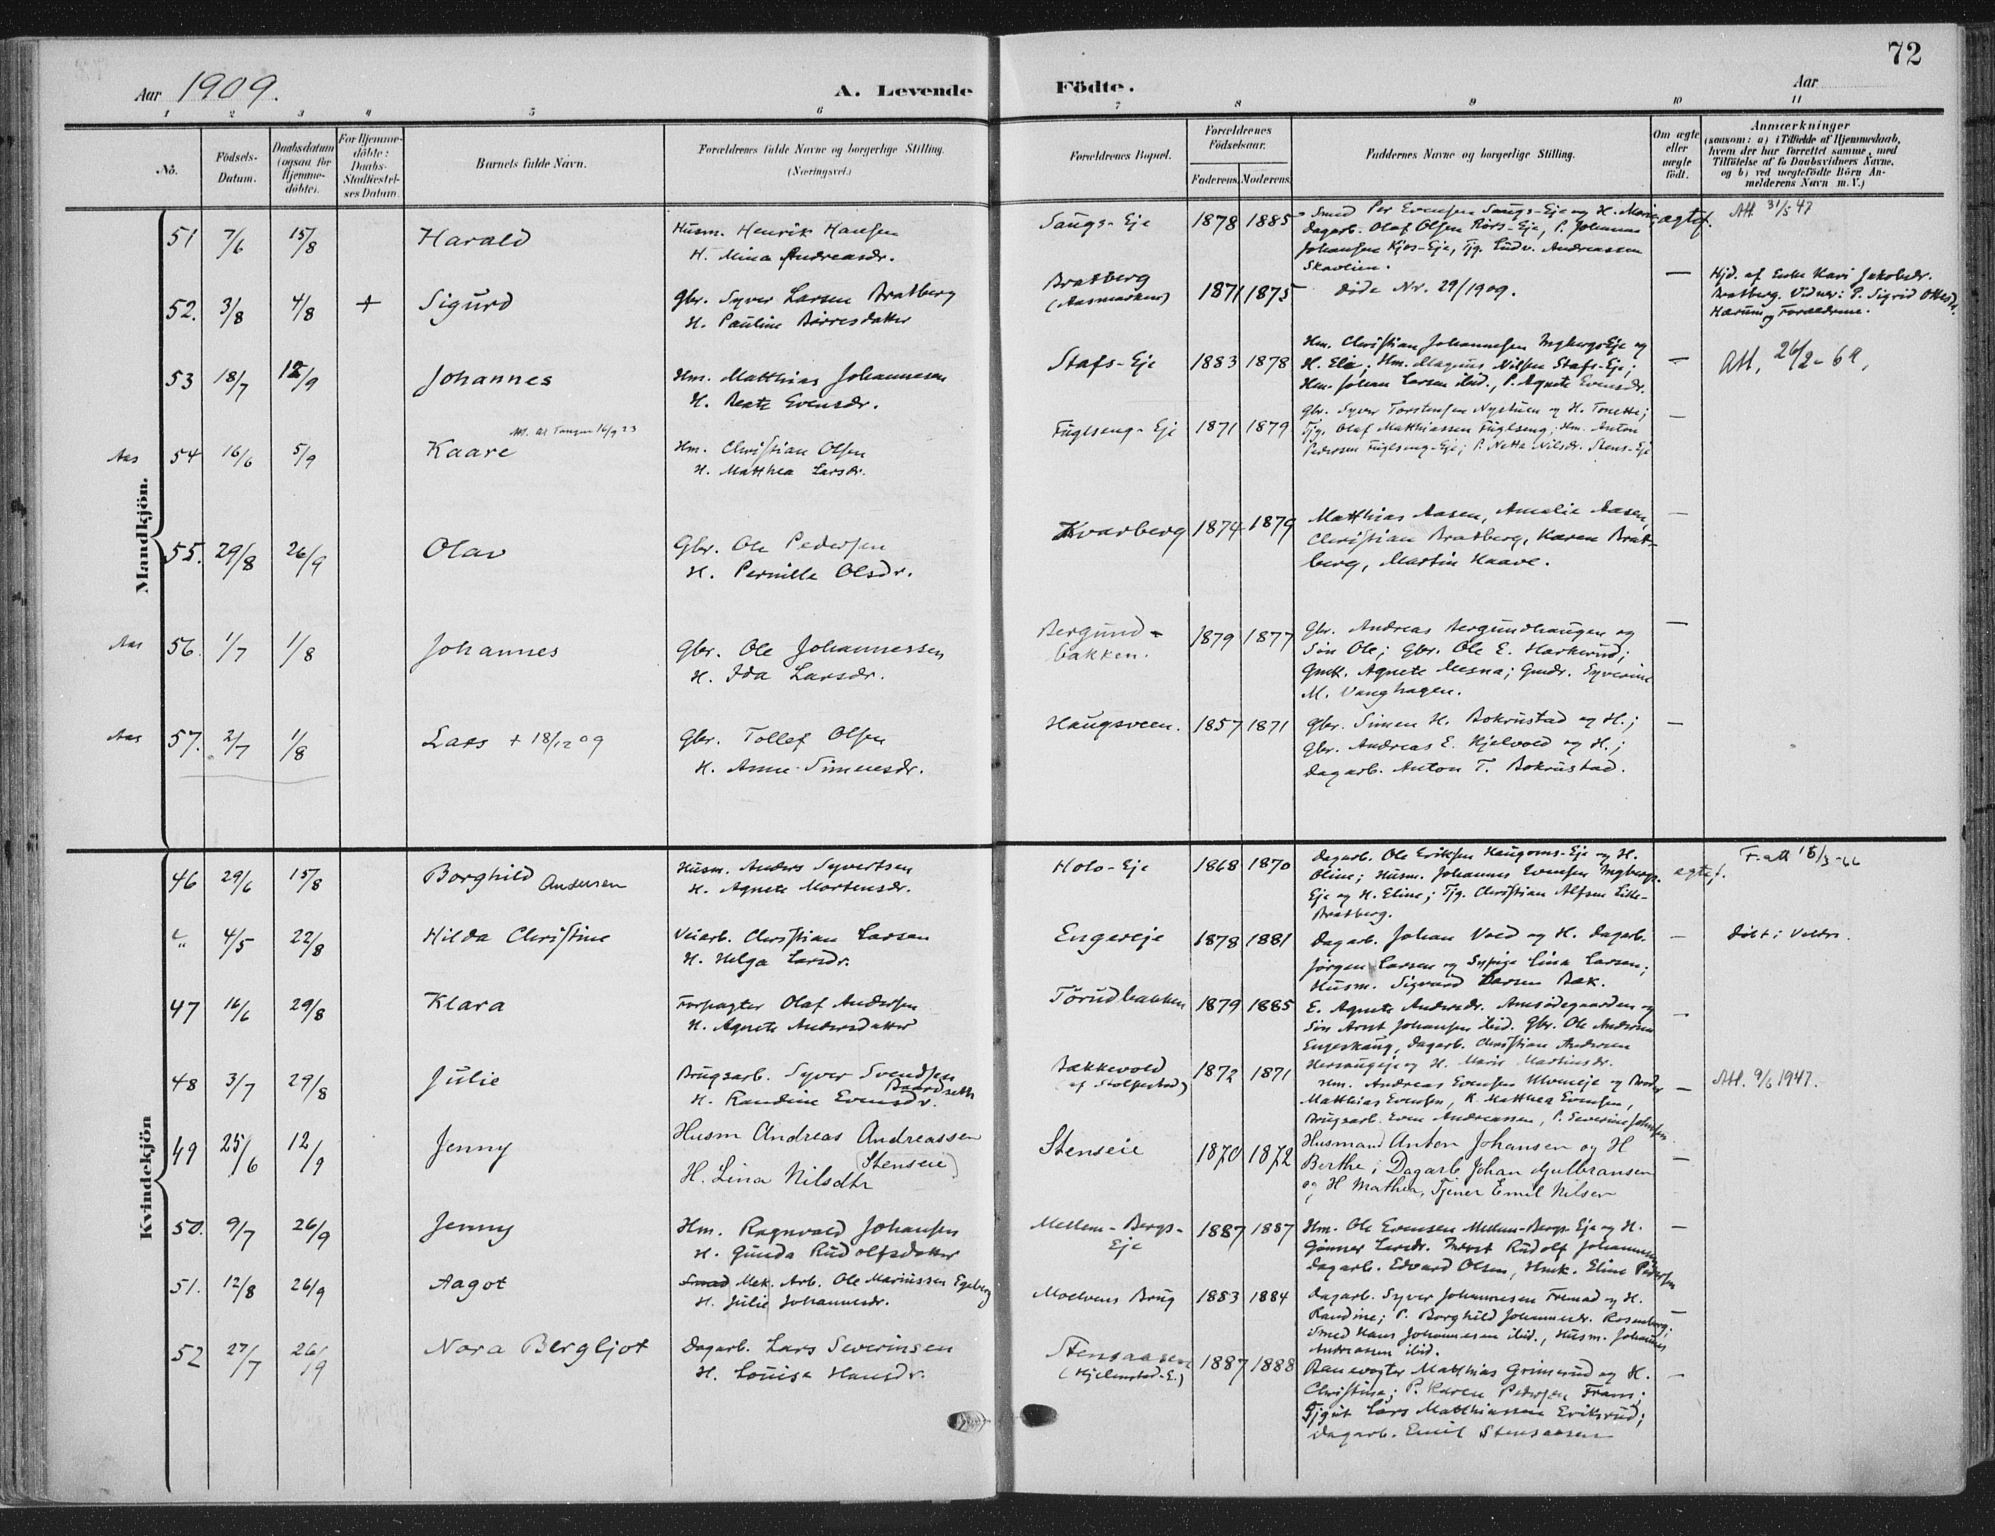 72
Aar 1909.
A. Levende Födte.
Aar
1 2 3 4 5 6 7 8 9 10 11
No.
Födsels-Datum.
Daabsdatum (ogsaa for Hjemme-döbte).
For Hjemme-döbte: Daabs-Stadfæstel-ses Datum
Barnets fulde Navn.
Forældrenes fulde Navne og borgerlige Stilling. (Næringsvei.)
Forældrenes Bopæl.
Forældrenes Födselsaar.
Faderens. Moderens.
Faddernes Navne og borgerlige Stilling.
Om ægte eller uægte födt.
Anmærkninger (saasom: a) i Tilfælde af Hjemmedaab, hvem der har forrettet samme, med Tilföielse af to Daabsvidners Navne, og b) ved uægtefödte Börn An-melderens Navn m. V.)
Mandkjön.
51 7/6 15/8 Harald
Husm. Henrik Hansen
H. Mina Andreasdr.
Saugs-Eje 1878 1885
Smed Per Evensen Saugs-Eje og H. Marie
Dagarb. Olaf Olsen Rörs-Eje, P. Johanna
Johansen Kjos-Eje, Tjg. Ludv. Andreassen
Skavlien.
ægtef. Att. 31/5 47
52. 3/8 4/8 + Sigurd
Gbr. Syver Larsen Bratberg
H. Pauline Börresdatter
Bratberg
(Aasmarken) 1871 1875
Döde Nr. 29/1909.
—
Hjd. af Enke Kari Jakobsdr.
Bratberg. Vidner: P. Sigrid
og Forældrene.
53 18/7 12/9 Johannes
Hm. Matthias Johannesen
H. Beate Evensdr.
Stafs-Eje 1883 1878
Hm. Christian Johannesen Ingbergs-Eje og
H. Elie; Hm. Magnus Nilsen Stafs-Eje;
Hm. Johan Larsen ibid., P. Agnete Evensdr.
— Att. 26/2-69.
Aas 54 16/6 5/9 Kaare
Hm. Christian Olsen
H. Matthea Larsdr.
Fuglseng-Eje 1871 1879
Gbr. Syver Torstensen Nystuen og H. Tonette;
Tjg. Olaf Matthiassen Fuglseng; Hm. Anton
Pedersen Fuglseng-Eje; P. Netta Nilsdr. Stens-Eje
—
55. 29/8 26/9 Olav
Gbr. Ole Pedersen
H. Pernille Olsdr.
Kvarberg 1874 1879
Matthias Aasen, Amalie Aasen,
Christian Bratberg, Karen Brat-
berg, Martin Haave.
—
Aas 56. 1/7 1/8 Johannes
Gbr. Ole Johannessen
H. Ida Larsdr.
Bergund-
bakken. 1879 1877
Gbr. Andreas Bergundhaugen og
Sön Ole; Gbr. Ole E. Harkerud;
Gmk. Agnete Mesna; Gmdr. Syverine
M. Vanghagen.
—
Aas 57. 2/7 1/8 Lars + 18/12 09
Gbr. Tollef Olsen
H. Anne Simensdr.
Haugsveen. 1857 1871
Gbr. Simen H. Bokrustad og H.;
Gbr. Andreas E. Kjelvold og H.;
Dagarb. Anton T. Bokrustad.
—
Kvindekjön
46 29/6 15/8 Borghild Andersen
Husm. Anders Syvertsen
H. Agnete Mortensdr.
Holo-Eje 1868 1870
Dagarb. Ole Eriksen Haugoms-Eje og H.
Oline; Husm. Johannes Evensen Ingbergs-
Eje og H. Eline; Tjg. Christian Alfsen Lille-
Bratberg.
ægtef. F. att 15/3-66
4/5 22/8 Hilda Christine
Veiarb. Christian Larsen
H. Helga Larsdr.
Engereje 1878 1881
Dagarb. Johan Vold og H. Dagarb.
Jörgen Larsen og Sypige Lina Larsen;
Husm. Sigvard Larsen Bak.
— Döbt i Veldre.
47 16/6 29/8 Klara
Forpagter Olaf Andersen
H. Agnete Andersdatter
Törudbakken 1879 1885
E. Agnete Andersdr. Amsödegaarden og
Sön Arnt Johansen ibid. Gbr. Ole Andersen
Engeskaug, Dagarb. Christian Andersen
Hersaugeje og H. Marie Martinsdr.
—
48 3/7 29/8 Julie
Brugsarb. Syver Svendsen
Baardseth
H. Randine Evensdr.
Bækkevold
(af Stolpestad) 1872 1871
Hm. Andreas Evensen Ulveneje og Broder
Matthias Evensen, K. Matthea Evensen,
Brugsarb. Even Andreassen, P. Severine Johnsen
— Att. 9/6 1947.
49 25/6 12/9 Jenny
Husm Andreas Andreassen
(Stenseie)
H. Lina Nilsdtr
Stenseie 1870 1872
Husmand Anton Johansen og H
Berthe; Dagarb Johan Gulbransen
og H Mathea, Tjener Emil Nilsen
—
50. 9/7 26/9 Jenny
Hm. Ragnvald Johansen
H. Gunda Rudolfsdatter
Mellem-Bergs-
Eje 1887 1887
Hm. Ole Evensen Mellem-Bergs-Eje og H.
Gunner Larsdr. Inds. Rudolf Johannesen
Dagarb. Edvard Olsen, Hmk. Eline Pedersen
—
51. 12/8 26/9 Aagot
Smed Mek. Arb. Ole Mariussen Egeberg
H. Julie Johannesdr.
Moelvens Brug 1883 1884
Dagarb. Syver Johannesen Fremad og H.
Randine; P. Borghild Johannesdr. Rosenborg;
Smed Hans Johannesen ibid., Husm. Johannes
Andreasen ibid.
—
52 27/7 26/9 Nora Bergljot
Dagarb. Lars Severinsen
H. Louise Hansdr.
Stensaasen
(Hjelmstad-E.) 1887 1888
Banevogter Matthias Grimsrud og H.
Christina; P. Karen Pedersen Fram;
Tjgut Lars Matthiassen Eriksrud;
Dagarb. Emil Stensaasen
—